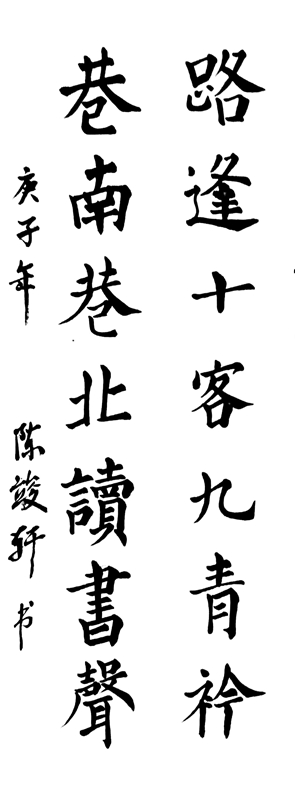 路逢十客九青衿
巷南巷北讀書聲
庚子年 陈竣轩书